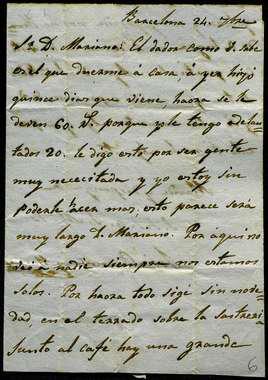 Barcelona 24. 7bre
Sr. D. Mariano: El dador como V. sabe
es el que duerme á casa, á yer hizo
quince dias que viene, haora se le
deven 60. porque yo le tengo adelan
tados 20. le digo esto por ser gente
muy nececitada y yo estoy sin
poderle hacer mas, esto parece será
muy largo D. Mariano. Por aqui no
nadie siempre nos estamos
solos. Por haora todo sige sin nove
dad, en el terrado sobre la sastreria
junto al café hay una grande
6